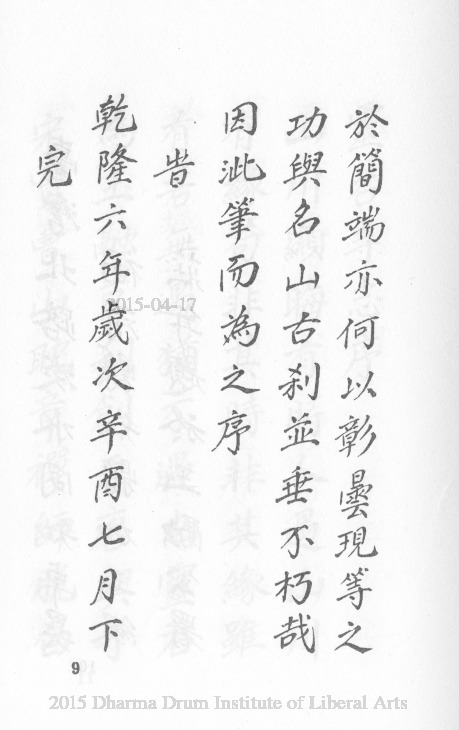 於簡端亦何以彰曇現等之
功與名山古剎並垂不朽哉
因泚筆而為之序
旹
乾隆六年歲次辛酉七月下
完
9
2015-04-17
2015 Dharma Drum Institute of Liberal Arts